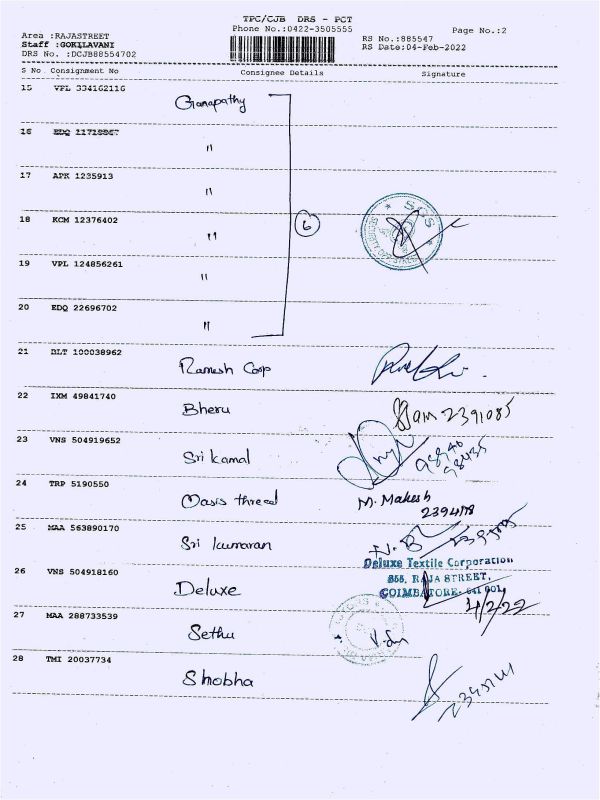 TPC/CJB DRS - PCT
Phone No.:0422-3505555
Page No.:2
Area :RAJASTREET
Staff :GOKILAVANI
DRS No. :DCJB88554702
RS No.:885547
RS Date:04-Feb-2022
S No Consignment No Consignee Details Signature
15 VPL 334162116 Ganapathy
16 EDQ 11718867 "
17 APK 1235913 "
18 KCM 12376402 " 6
SGS
19 VPL 124856261 "
20 EDQ 22696702 "
21 DLT 100038962 Ramesh Corp
22 IXM 49841740 Bheru 2391085
23 VNS 504919652 Sri Kamal
24 TRP 5190550 Oasis thread M. Mahesh
25 MAA 563890170 Sri Kumaran N.B
Deluxe Textile Corporation
RAJA STREET,
COIMBATORE- 641 001
26 VNS 504918160 Deluxe 4/2/22
27 MAA 288733539 Sethu
28 TMI 20037734 Shobha